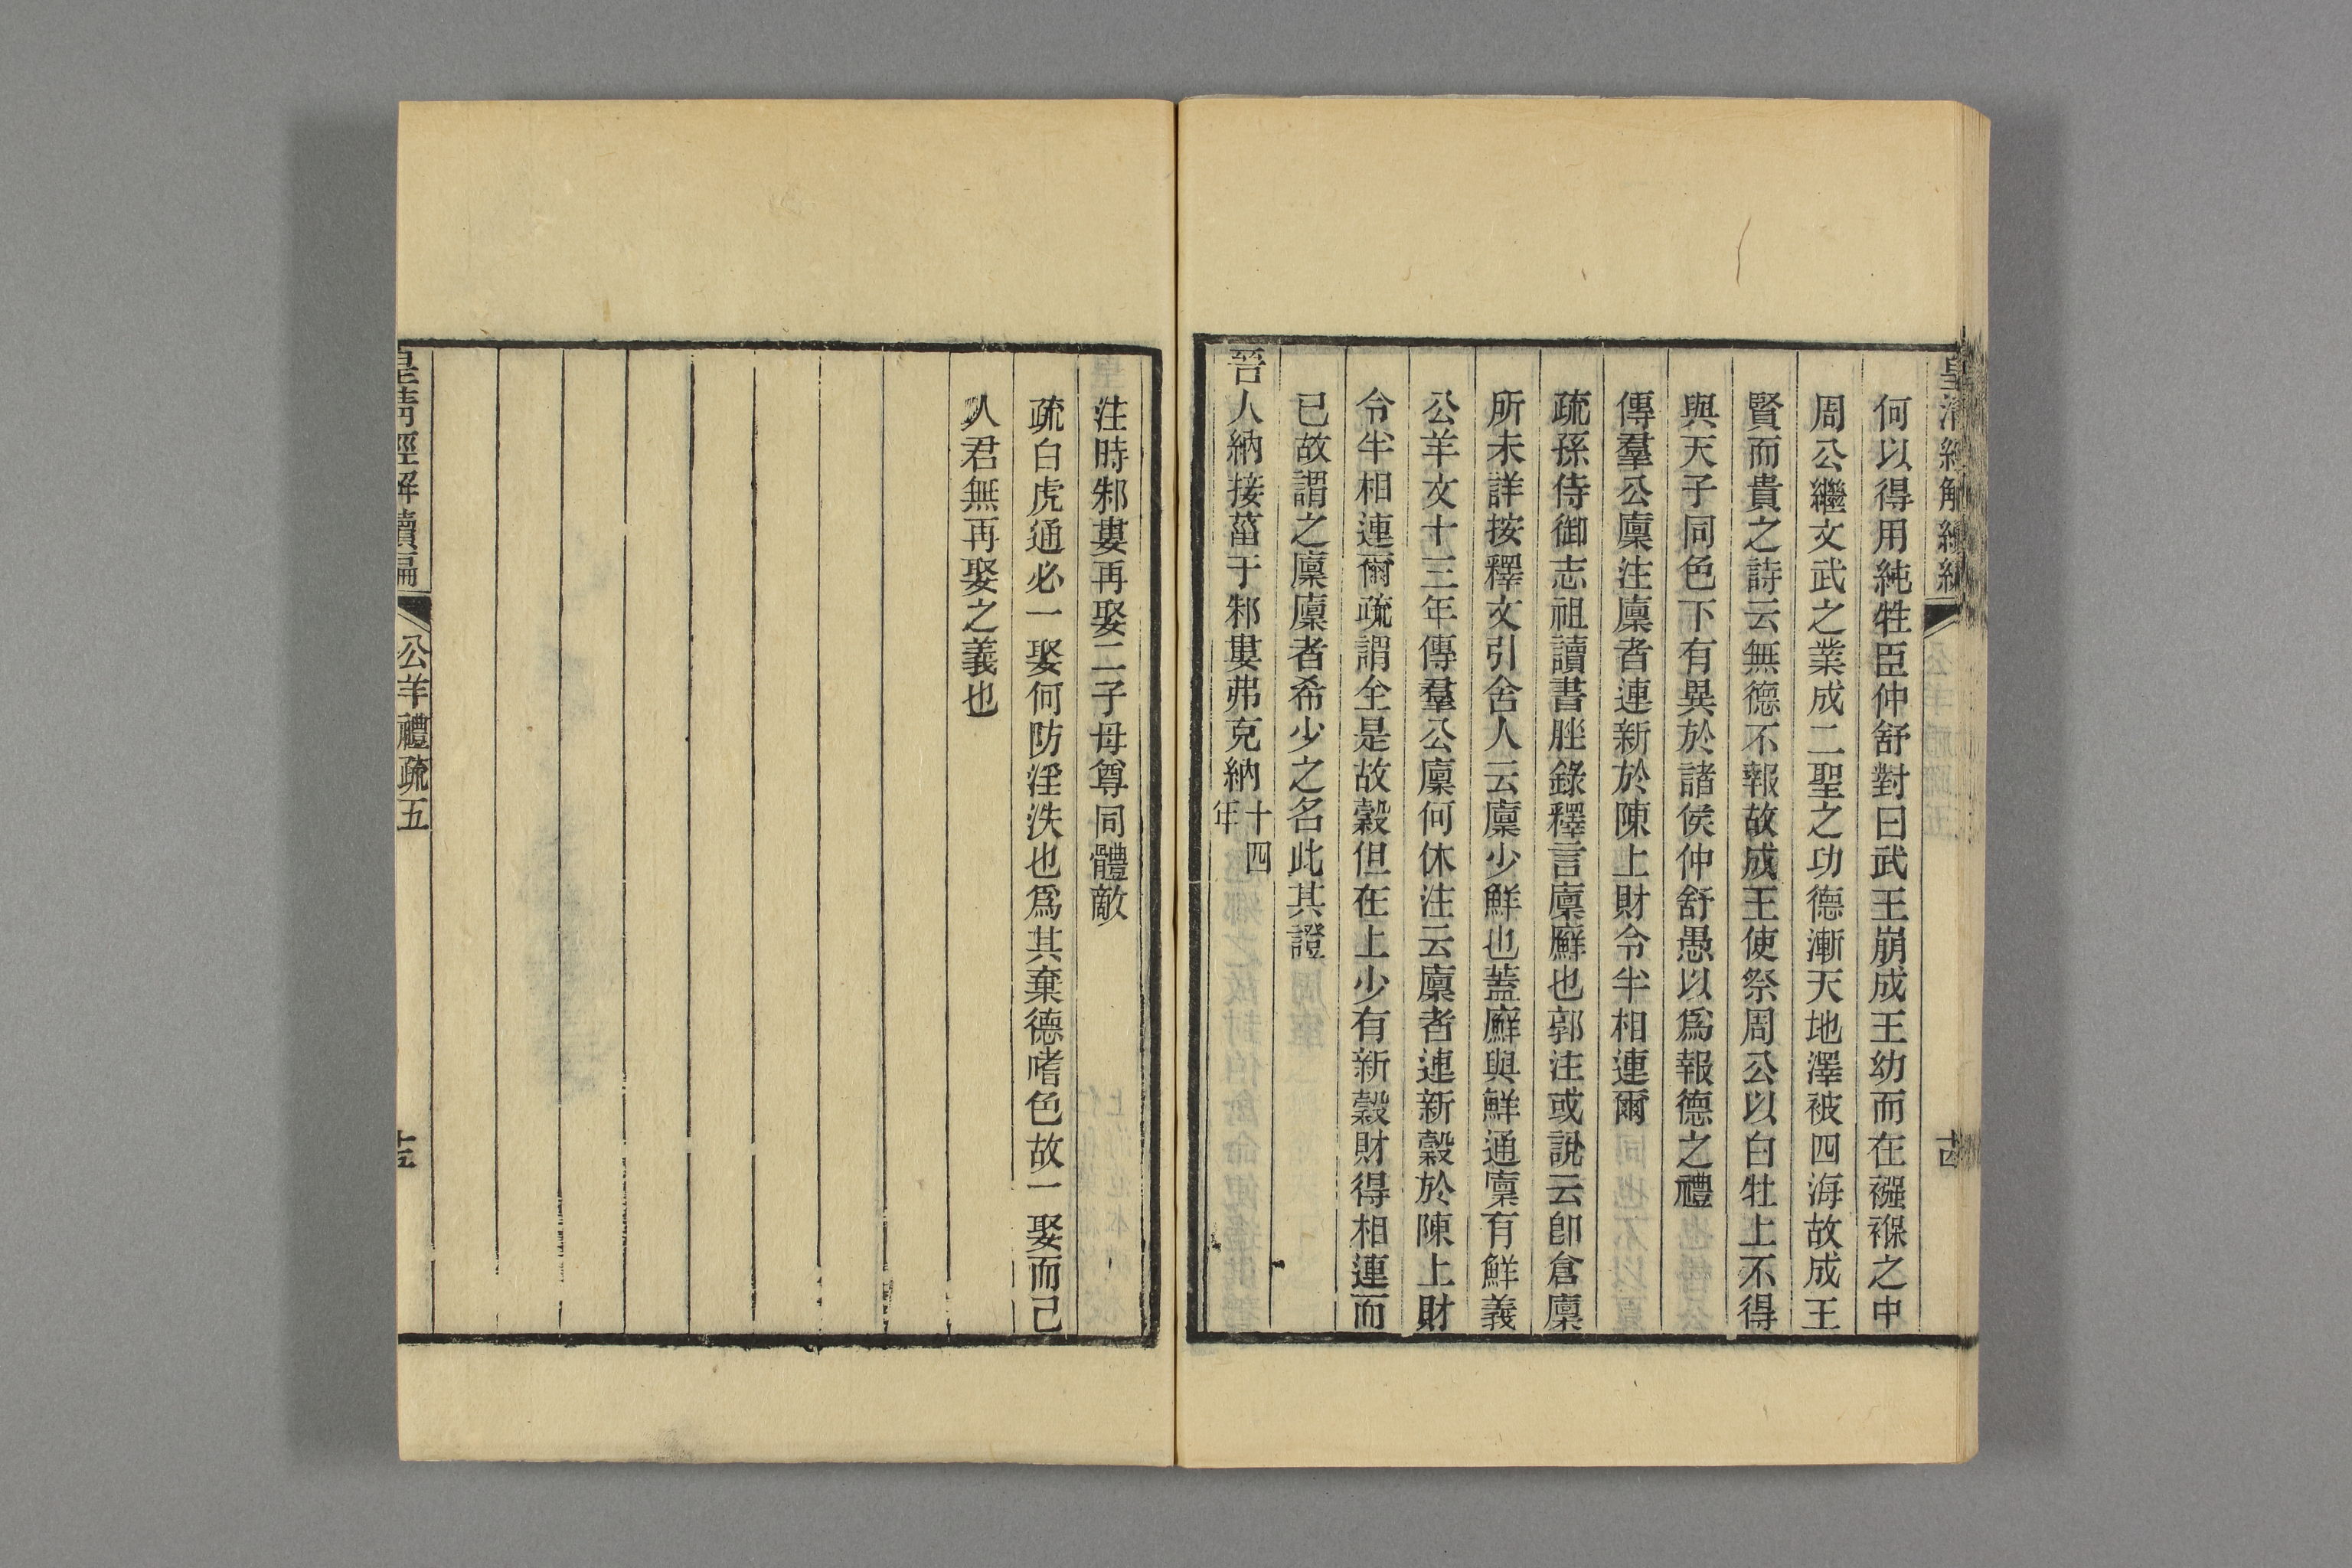 何以得用純牲臣仲舒對曰武王崩成王幼而在襁褓之中
周公繼文武之業成二聖之功德漸天地澤被四海故成王
賢而貴之詩云無德不報故成王使祭周公以白牡上不得
與天子同色下有異於諸侯仲舒愚以爲報德之禮
傳羣公廩注廩者連新於陳上財令半相連爾
疏孫侍御志祖讀書脞錄釋言廩廯也郭注或說云卽倉廩
所未詳按釋文引舍人云廩少鮮也蓋廯與鮮通廩有鮮義
公羊文十三年傳羣公廩何休注云廩者連新穀於陳上財
令半相連爾疏謂全是故穀但在上少有新穀財得相連而
已故謂之廩廩者希少之名此其證
晉人納接菑于邾婁弗克納十四年
注時邾婁再娶二子母尊同體敵
疏白虎通必一娶何防淫泆也爲其棄德嗜色故一娶而已
人君無再娶之義也
皇淸經解續編
公羊禮疏五